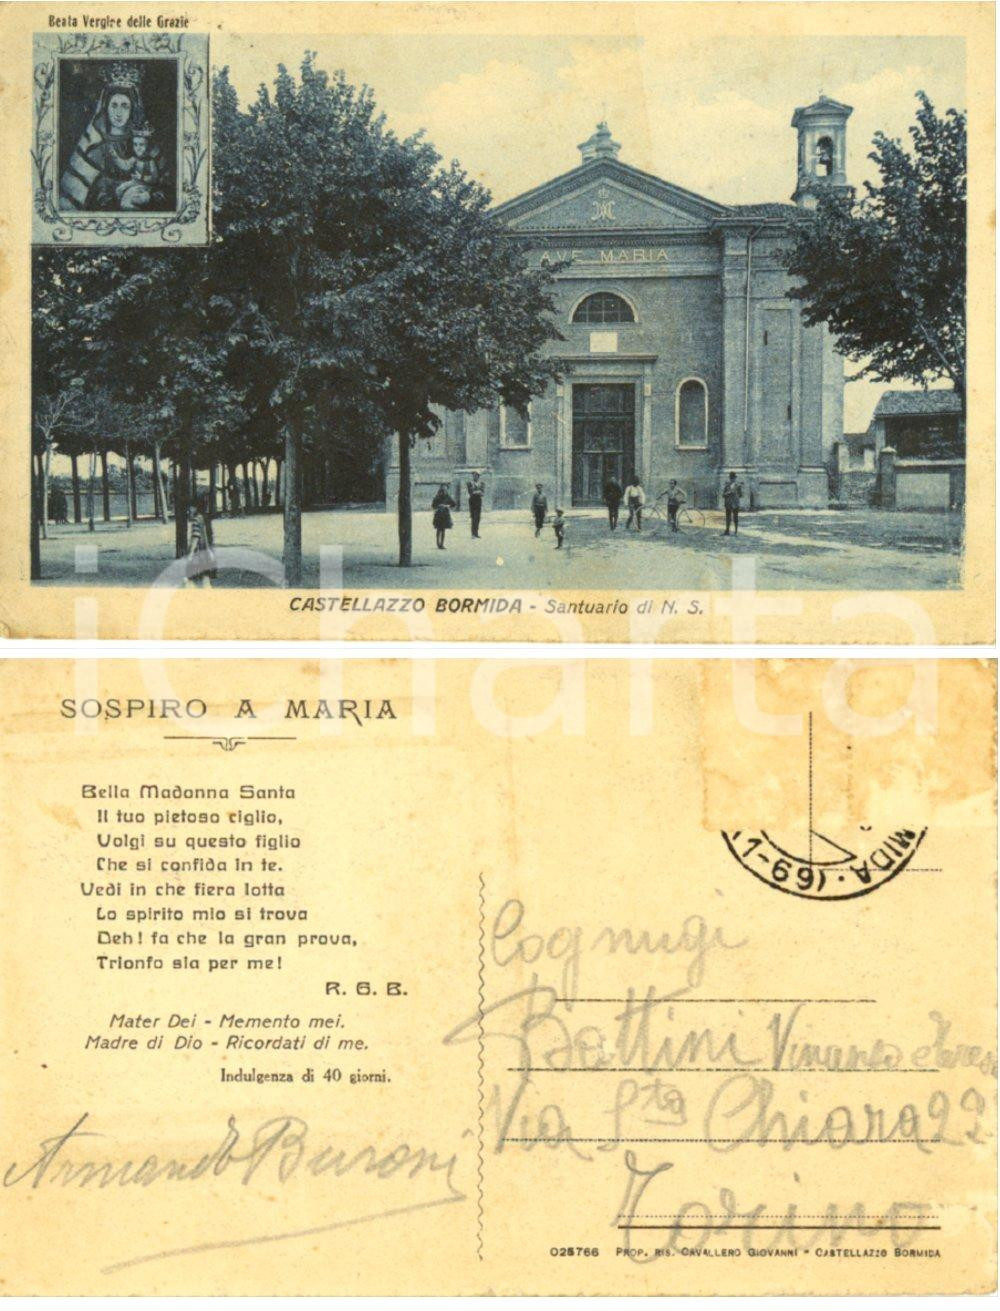 Beata Vergine delle Grazie
AVE MARIA
CASTELLAZZO BORMIDA - Santuario di N. S.
iCharta
SOSPIRO A MARIA
Bella Madonna Santa
Il tuo pietoso ciglio,
Volgi su questo figlio
Che si confida in te.
Vedi in che fiera lotta
Lo spirito mio si trova
Deh! fa che la gran prova,
Trionfo sia per me!
R. G. B.
Mater Dei - Memento mei.
Madre di Dio - Ricordati di me.
Indulgenza di 40 giorni.
Armando Buroni
MIDA · (1-69)
Cognugi
Battini
Via Sta Chiara 22
Torino
025766 PROP. RIS. CAVALLERO GIOVANNI - CASTELLAZZO BORMIDA